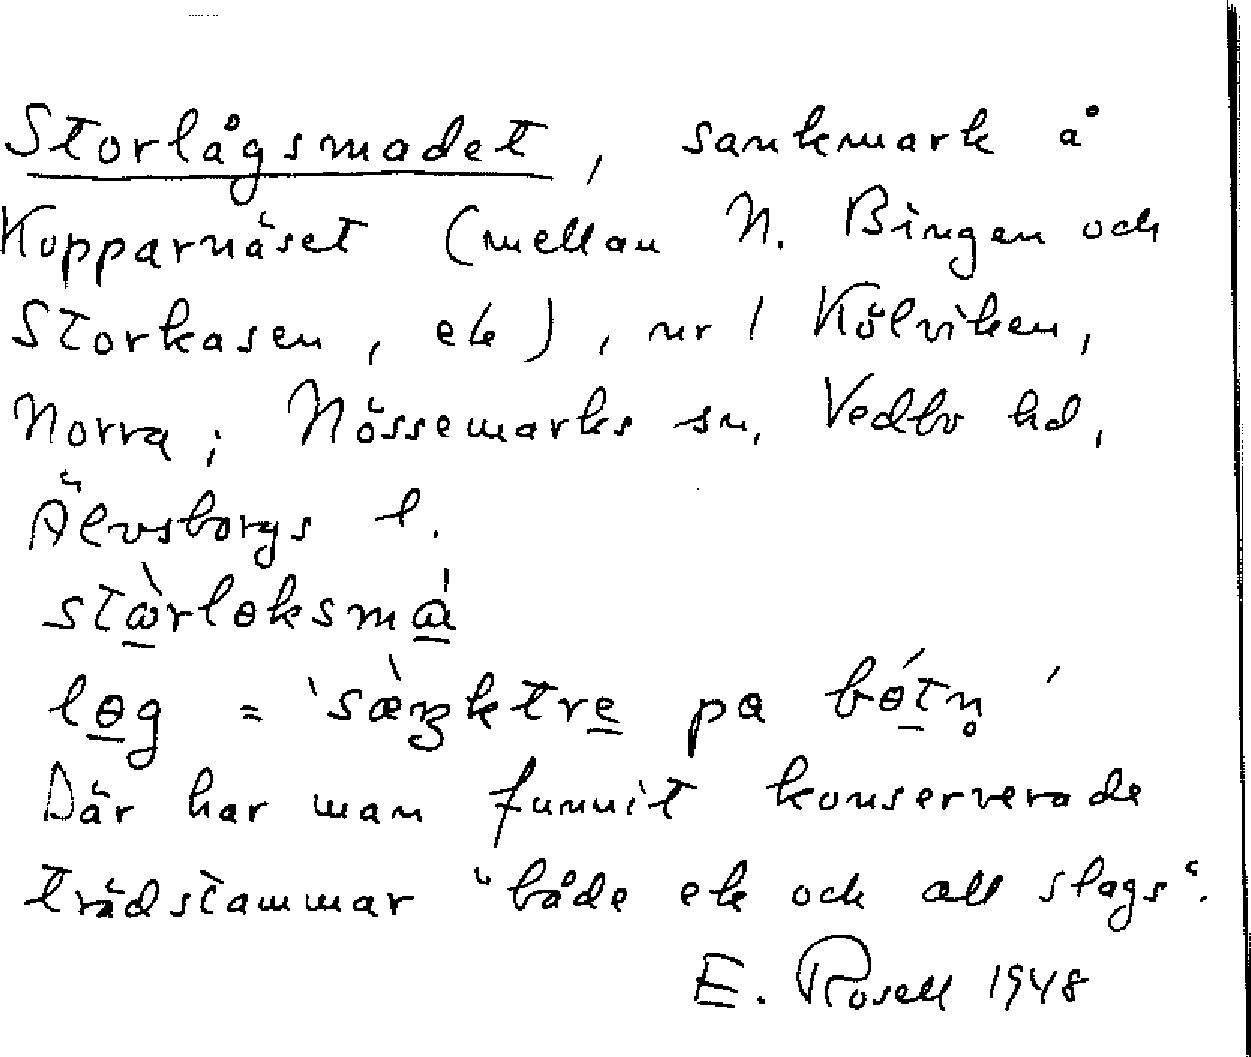 Storlågsmadet, sankmark å
Kopparnäset (mellan N. Bingen och
Storkasen, ek), nr 1 Kölviken,
Norra; Nössemarks sn, Vedbo hd,
Älvsborgs l.
stὼ̲rlɵksmα̲̍
lɵ̲g = 'sæ̀ŋktre̲ pα bɵ̲́tn̥'
Där har man funnit konserverade
trädstammar "både ek och all slags".
E. Rosell 1948